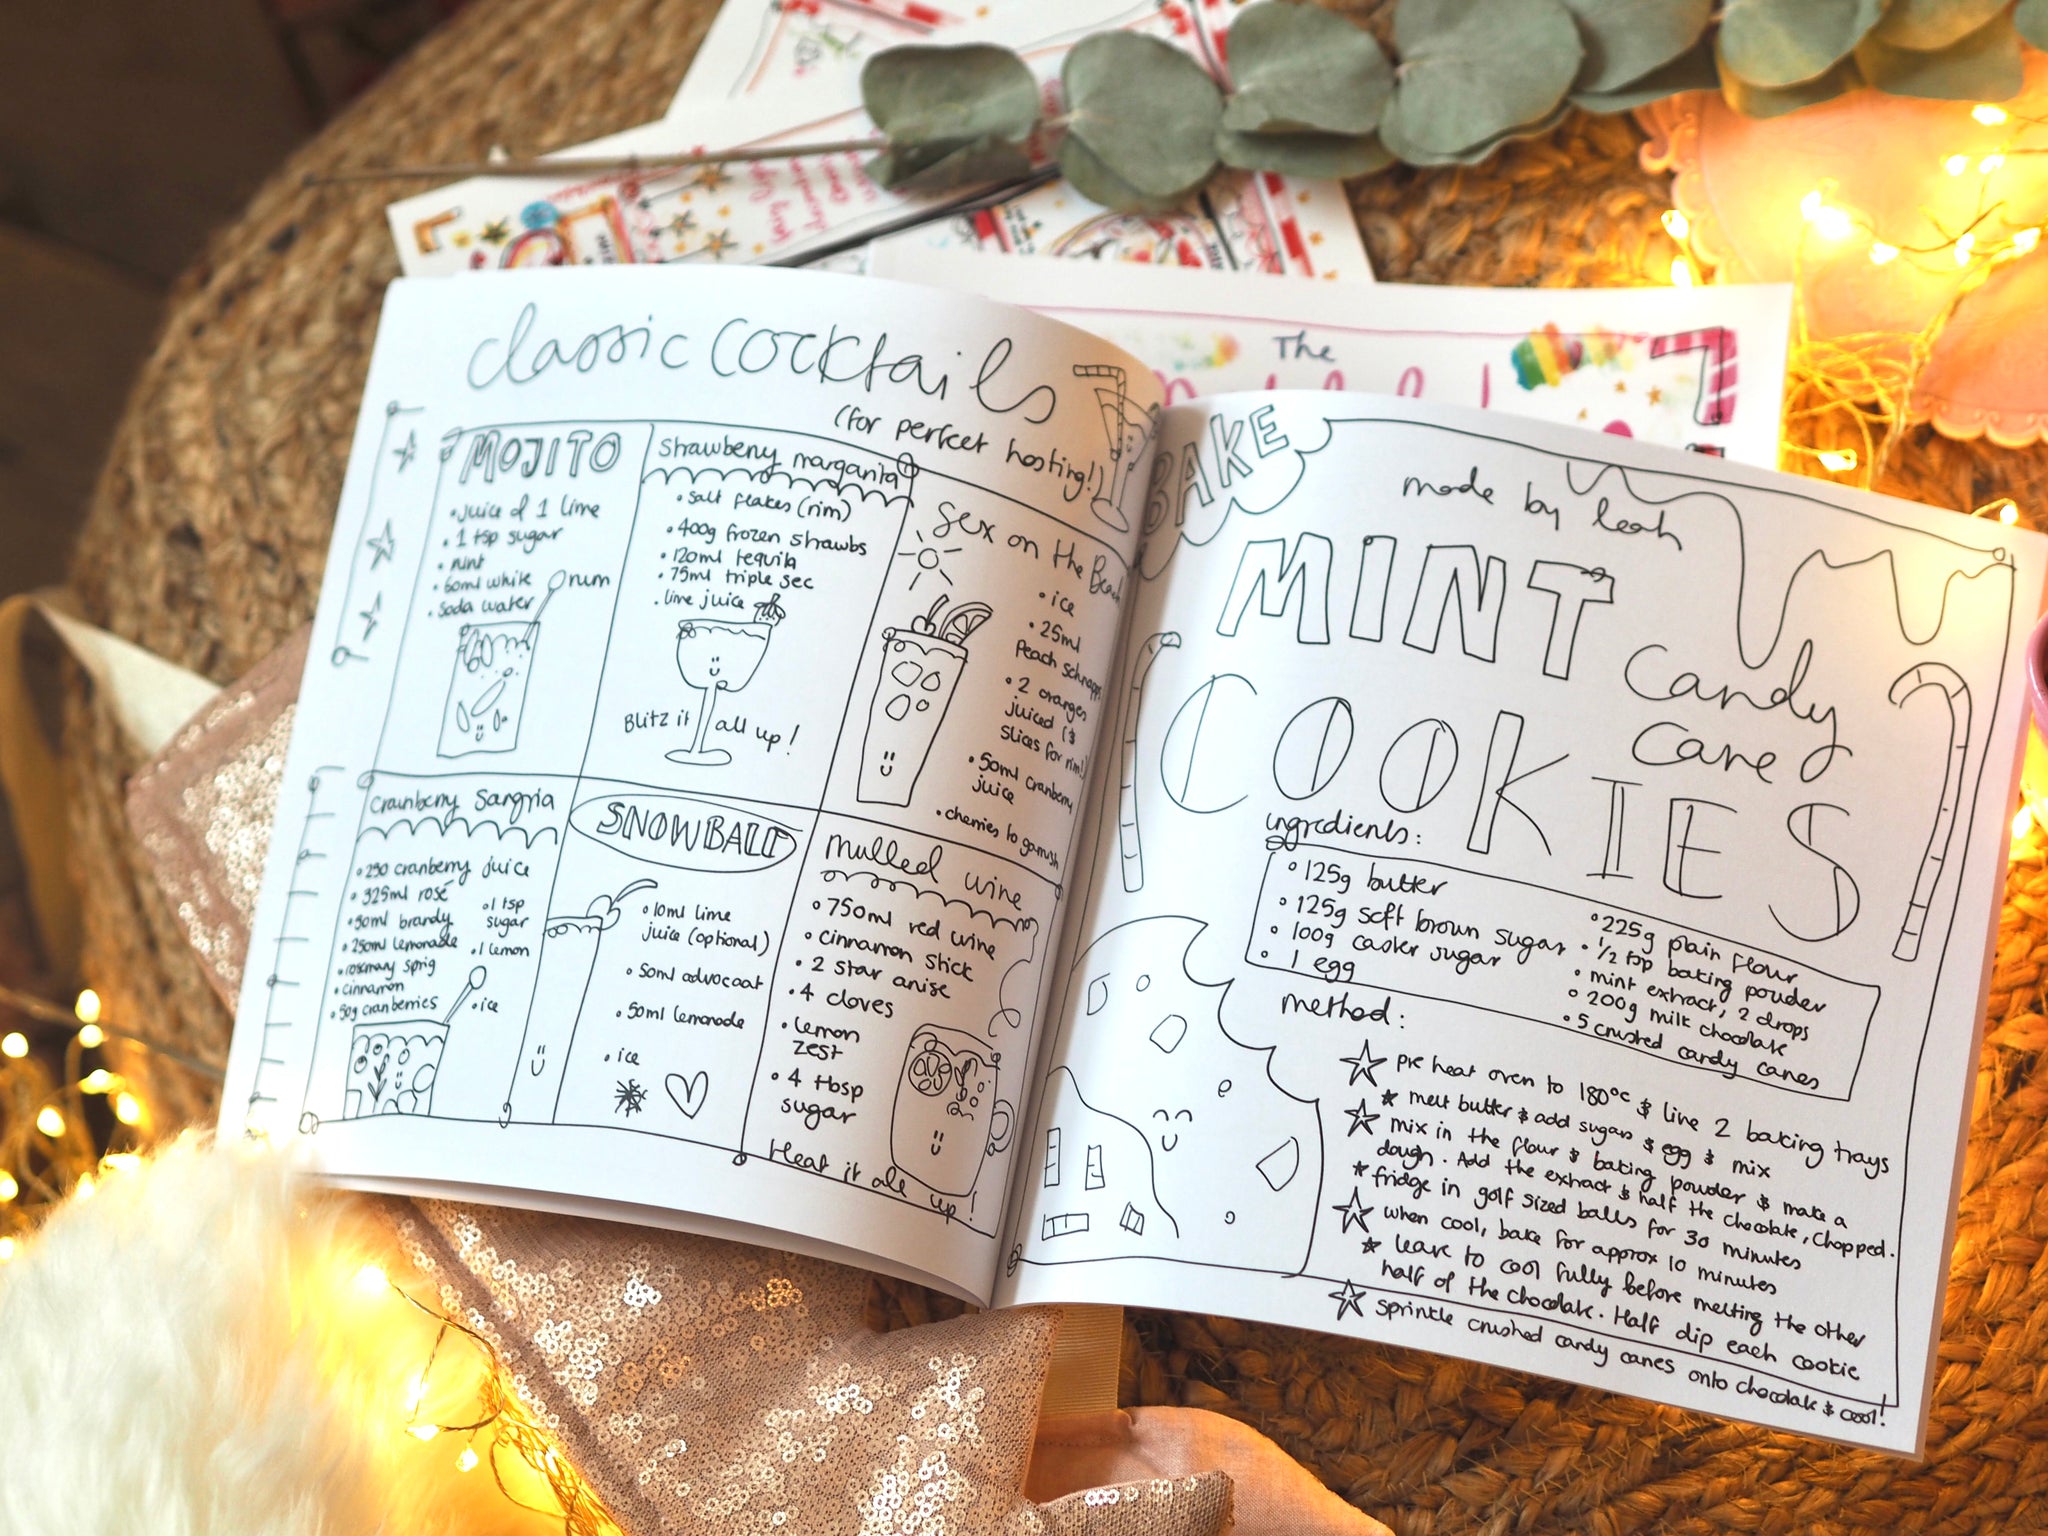 The
classic cocktails
(for perfect hosting!)
MOJITO
• juice of 1 lime
• 1 tsp sugar
• mint
• 60ml white rum
• soda water
strawberry margarita
• salt flakes (rim)
• 400g frozen strawbs
• 120ml tequila
• 75ml triple sec
• lime juice
Blitz it all up!
Sex on the Beach
• ice
• 25ml
peach schnapps
• 2 oranges
juiced (&
slices for rim!)
• 50ml cranberry
juice
• cherries to garnish
Cranberry Sangria
• 250 cranberry juice
• 325ml rosé
• 50ml brandy
• 250ml lemonade
• rosemary sprig
• cinnamon
• 50g cranberries
• 1 tsp
sugar
• 1 lemon
• ice
SNOWBALL
• 10ml lime
juice (optional)
• 50ml advocaat
• 50ml lemonade
• ice
Mulled wine
• 750ml red wine
• cinnamon stick
• 2 star anise
• 4 cloves
• lemon
zest
• 4 tbsp
sugar
Heat it all up!
BAKE
made by leah
MINT
Candy
Cane
COOKIES
ingredients:
• 125g butter
• 125g soft brown sugar
• 100g caster sugar
• 1 egg
• 225g plain flour
• 1/2 tsp baking powder
• mint extract, 2 drops
• 200g milk chocolate
• 5 crushed candy canes
method:
pre heat oven to 180°c & line 2 baking trays
melt butter & add sugars & egg & mix
mix in the flour & baking powder & make a
dough. Add the extract & half the chocolate, chopped.
fridge in golf sized balls for 30 minutes
when cool, bake for approx 10 minutes
leave to cool fully before melting the other
half of the chocolate. Half dip each cookie
sprinkle crushed candy canes onto chocolate & cool!